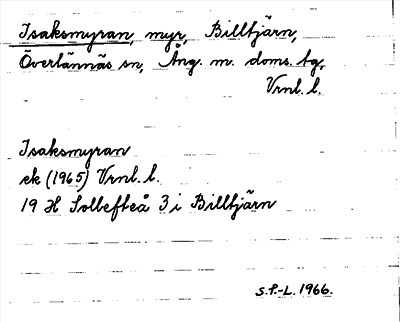 Isaksmyran, myr, Billtjärn,
Överlännäs sn, Ång. m. doms. tg,
Vrnl. l.
Isaksmyran
ek (1965) Vrnl. l.
19 H Sollefteå 3 i Billtjärn
S.P.-L. 1966.